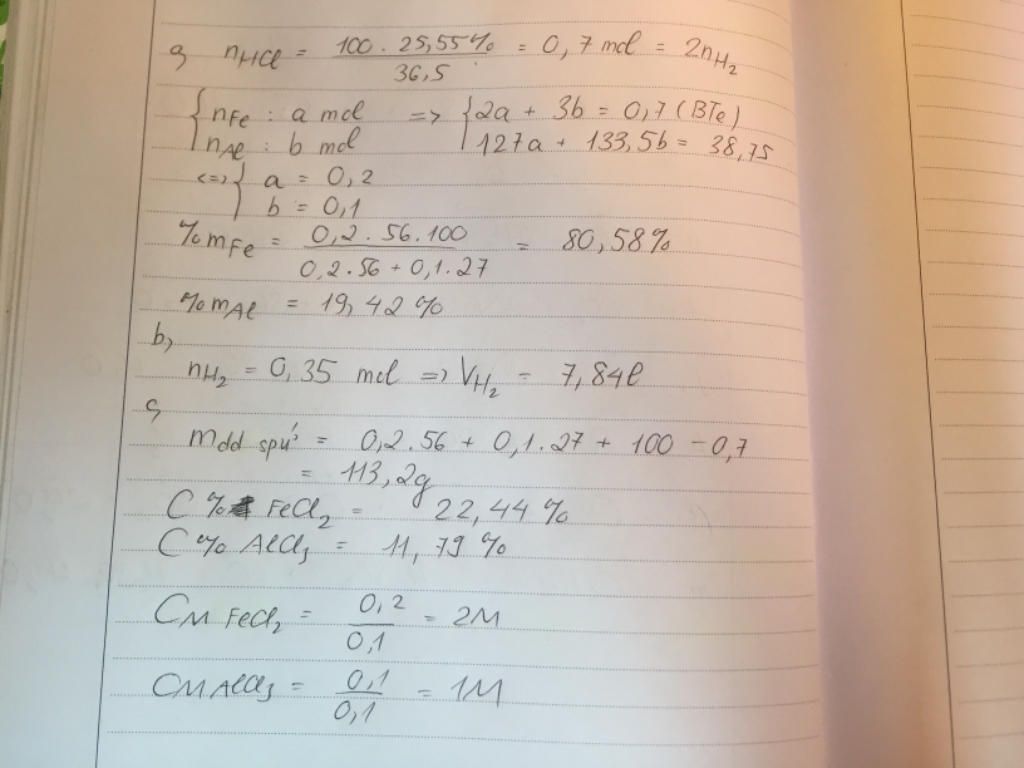 a, nHCl = 100 . 25,55% / 36,5 = 0,7 mol = 2nH2
{ nFe : a mol => { 2a + 3b = 0,7 (BTe)
nAl : b mol 127a + 133,5b = 38,75
<=> { a = 0,2
b = 0,1
%mFe = 0,2 . 56 . 100 / 0,2.56 + 0,1.27 = 80,58%
%mAl = 19,42%
b,
nH2 = 0,35 mol => VH2 = 7,84l
c,
mdd spứ = 0,2.56 + 0,1.27 + 100 - 0,7
= 113,2g
C% FeCl2 = 22,44%
C% AlCl3 = 11,79%
CM FeCl2 = 0,2 / 0,1 = 2M
CM AlCl3 = 0,1 / 0,1 = 1M